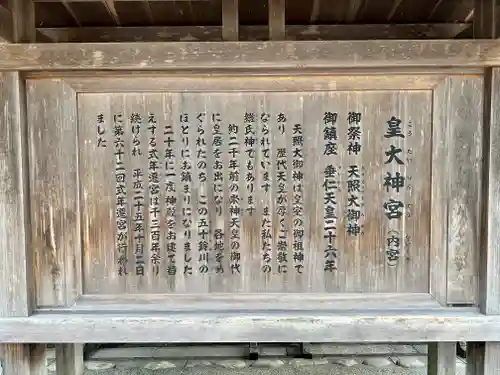 皇大神宮（内宮）
御祭神 天照大御神
御鎮座 垂仁天皇二十六年
天照大御神は皇室の御祖神で
あり 歴代天皇が厚くご崇敬に
なられています また私たちの
総氏神でもあります
約二千年前の崇神天皇の御代
に皇居をお出になり 各地をめ
ぐられたのち この五十鈴川の
ほとりにお鎮まりになりました
二十年に一度 神殿をお建て替
えする式年遷宮は千三百年余り
続けられ 平成二十五年十月二日
に第六十二回式年遷宮が行われ
ました